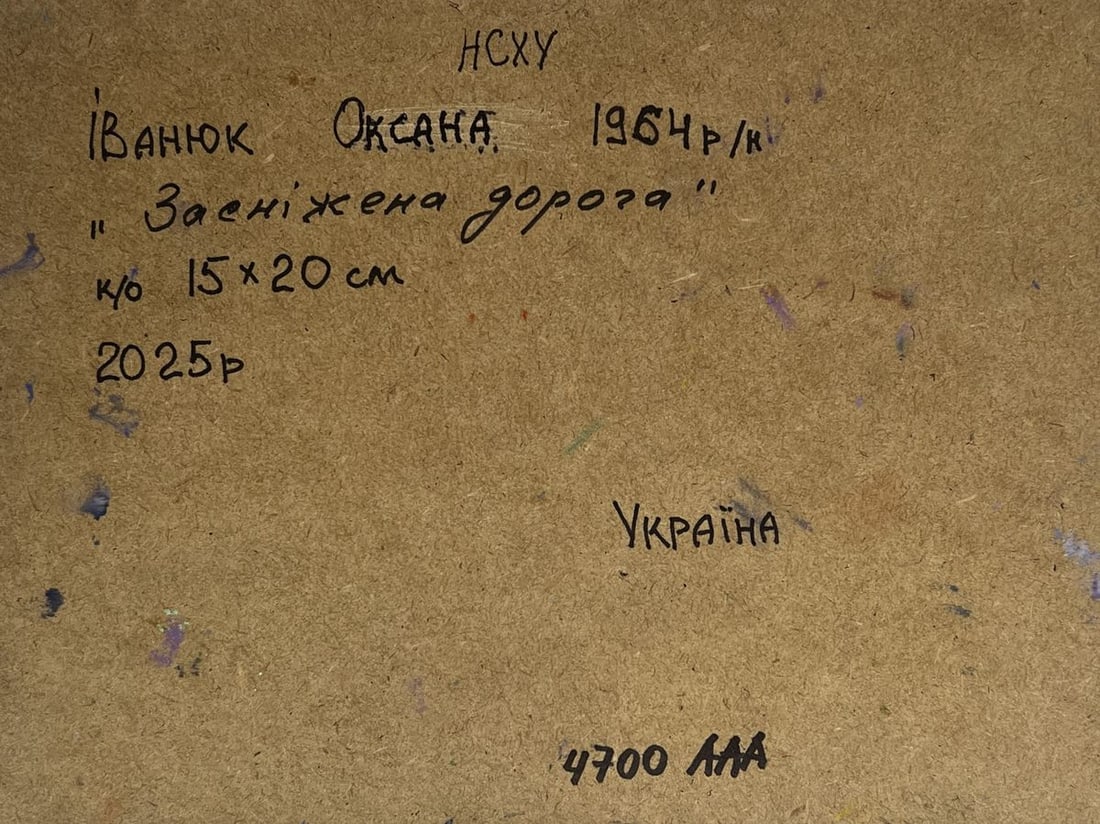 НСХУ
Іванюк Оксана 1964 р/н
„Засніжена дорога"
к/о 15×20 см
2025р
Україна
4700 ААА